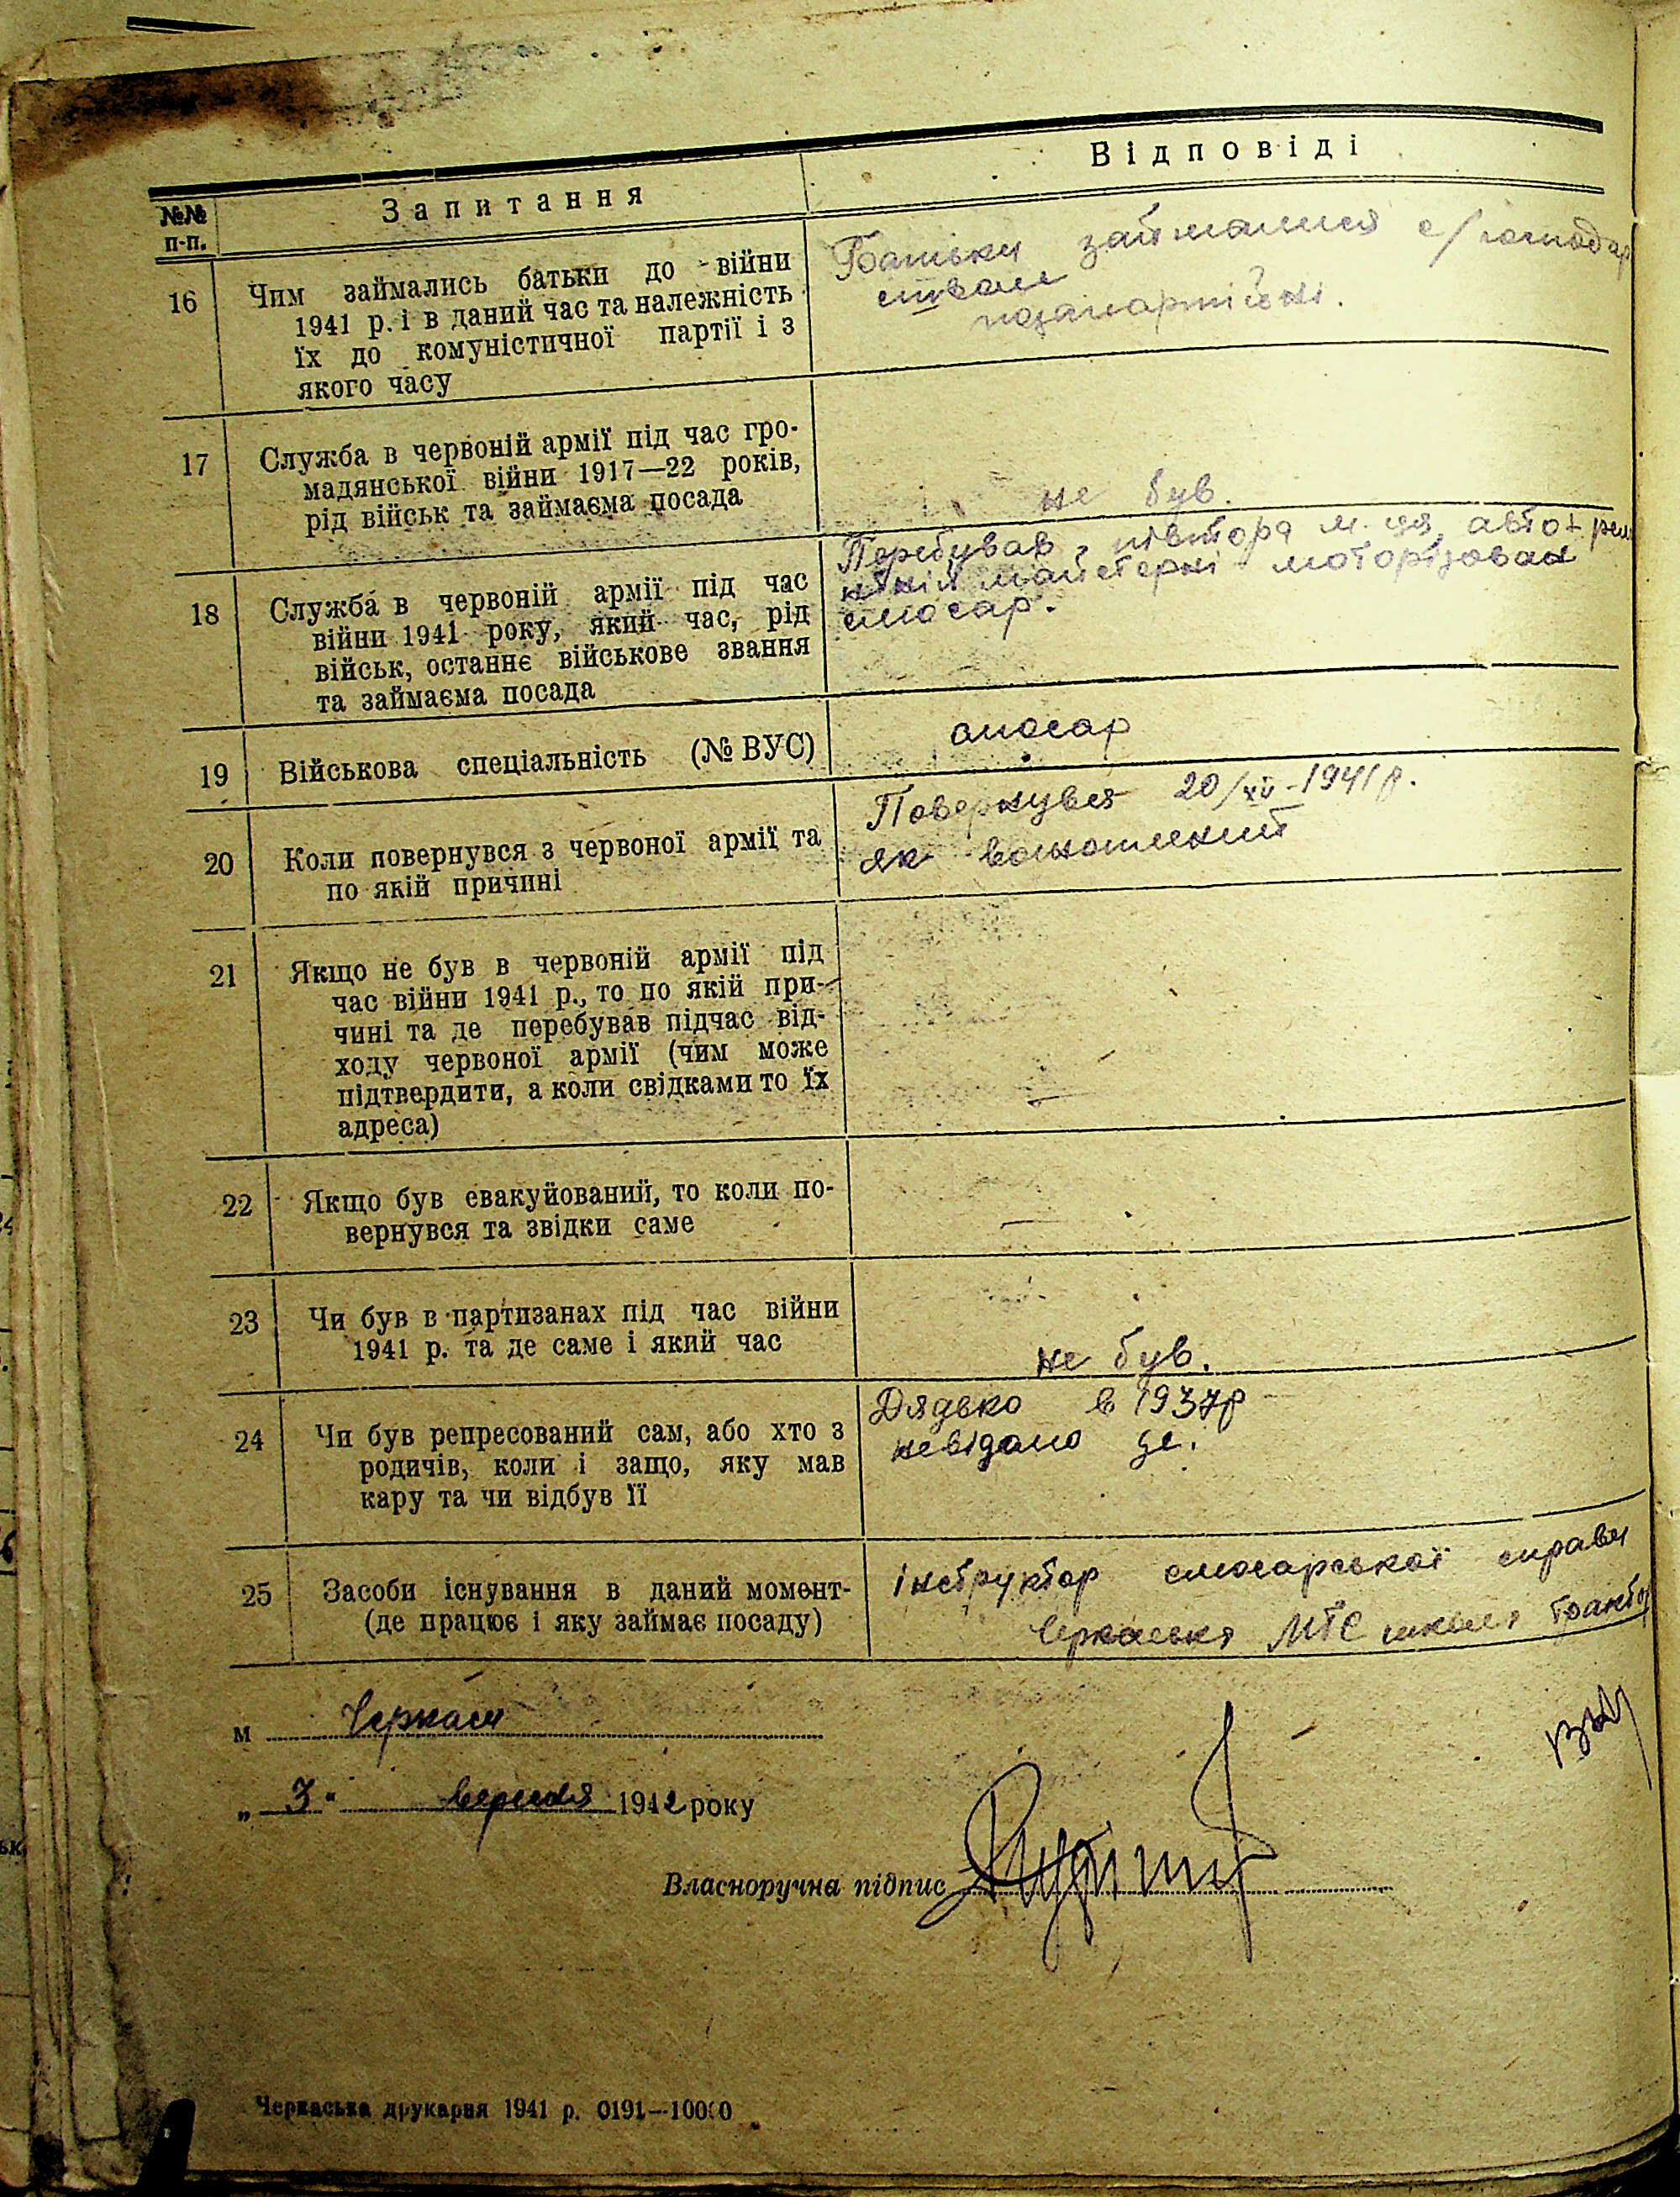 №№ п-п.
Запитання
Відповіді
16
Чим займались батьки до війни
1941 р. і в даний час та належність
їх до комуністичної партії і з
якого часу
Батьки займалися с/господар
ством
позапартійні.
17
Служба в червоній армії під час гро-
мадянської війни 1917—22 років,
рід військ та займаєма посада
не був.
18
Служба в червоній армії під час
війни 1941 року, який час, рід
військ, останнє військове звання
та займаєма посада
Перебував півтора м-ця авто
майстерні
слюсар.
19
Військова спеціальність (№ ВУС)
слюсар
20
Коли повернувся з червоної армії та
по якій причині
Повернувся 1941 р.
як
21
Якщо не був в червоній армії під
час війни 1941 р., то по якій при-
чині та де перебував підчас від-
ходу червоної армії (чим може
підтвердити, а коли свідками то їх
адреса)
—
22
Якщо був евакуйований, то коли по-
вернувся та звідки саме
—
23
Чи був в партизанах під час війни
1941 р. та де саме і який час
не був.
24
Чи був репресований сам, або хто з
родичів, коли і защо, яку мав
кару та чи відбув її
Дядько в 1937р
невідомо де.
25
Засоби існування в даний момент-
(де працює і яку займає посаду)
інструктор слюсарської справи
МТС школа
м Черкаси
„ 3 " вересня 1942 року
Власноручна підпис
Черкаська друкарня 1941 р. 0191—10000